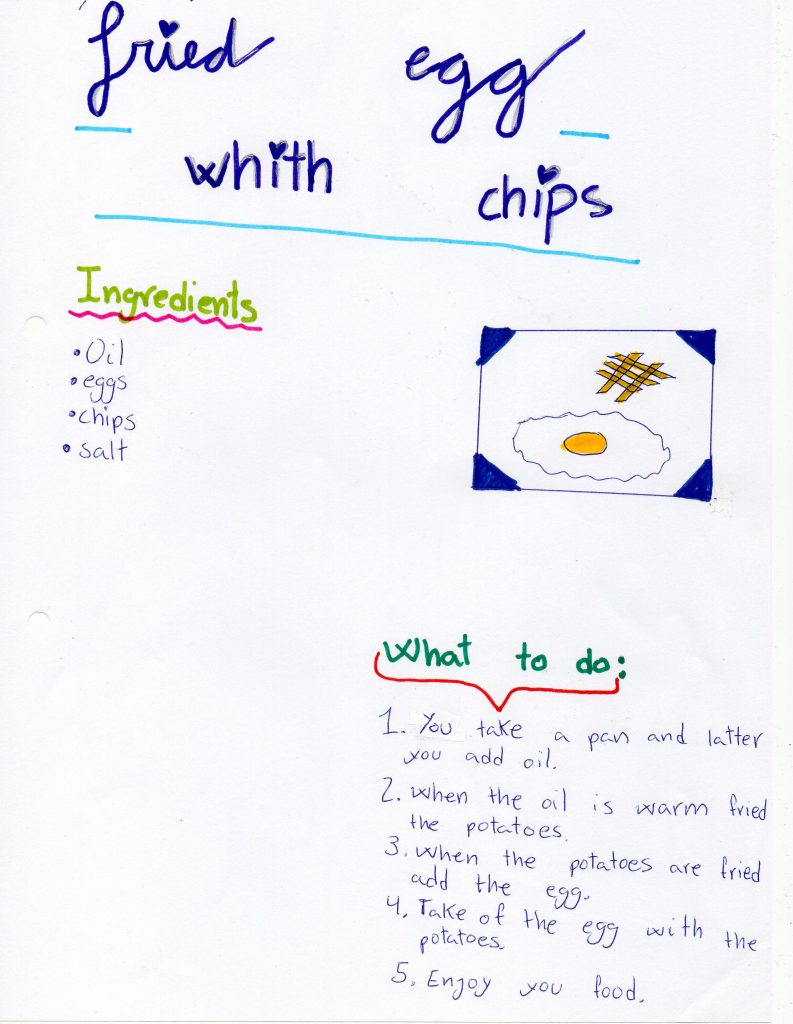 fried egg
whith chips
Ingredients
• Oil
• eggs
• chips
• salt
What to do:
1. You take a pan and latter
you add oil.
2. When the oil is warm fried
the potatoes.
3. When the potatoes are fried
add the egg.
4. Take of the egg with the
potatoes.
5. Enjoy you food.